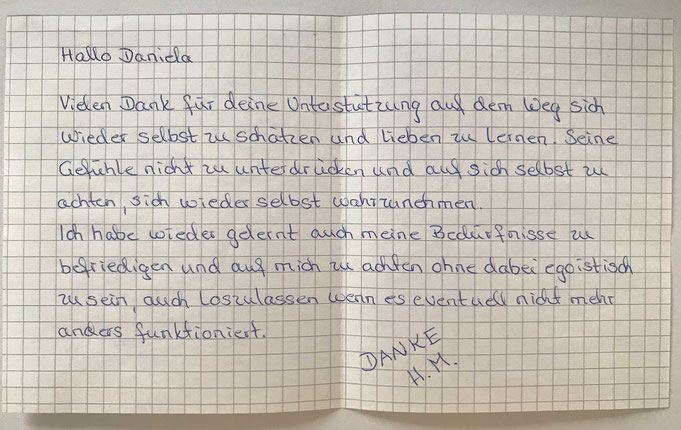 Hallo Daniela
Vielen Dank für deine Unterstützung auf dem Weg sich
wieder selbst zu schätzen und lieben zu lernen. Seine
Gefühle nicht zu unterdrücken und auf sich selbst zu
achten, sich wieder selbst wahrzunehmen.
Ich habe wieder gelernt auch meine Bedürfnisse zu
befriedigen und auf mich zu achten ohne dabei egoistisch
zu sein, auch loszulassen wenn es eventuell nicht mehr
anders funktioniert.
DANKE
H.M.